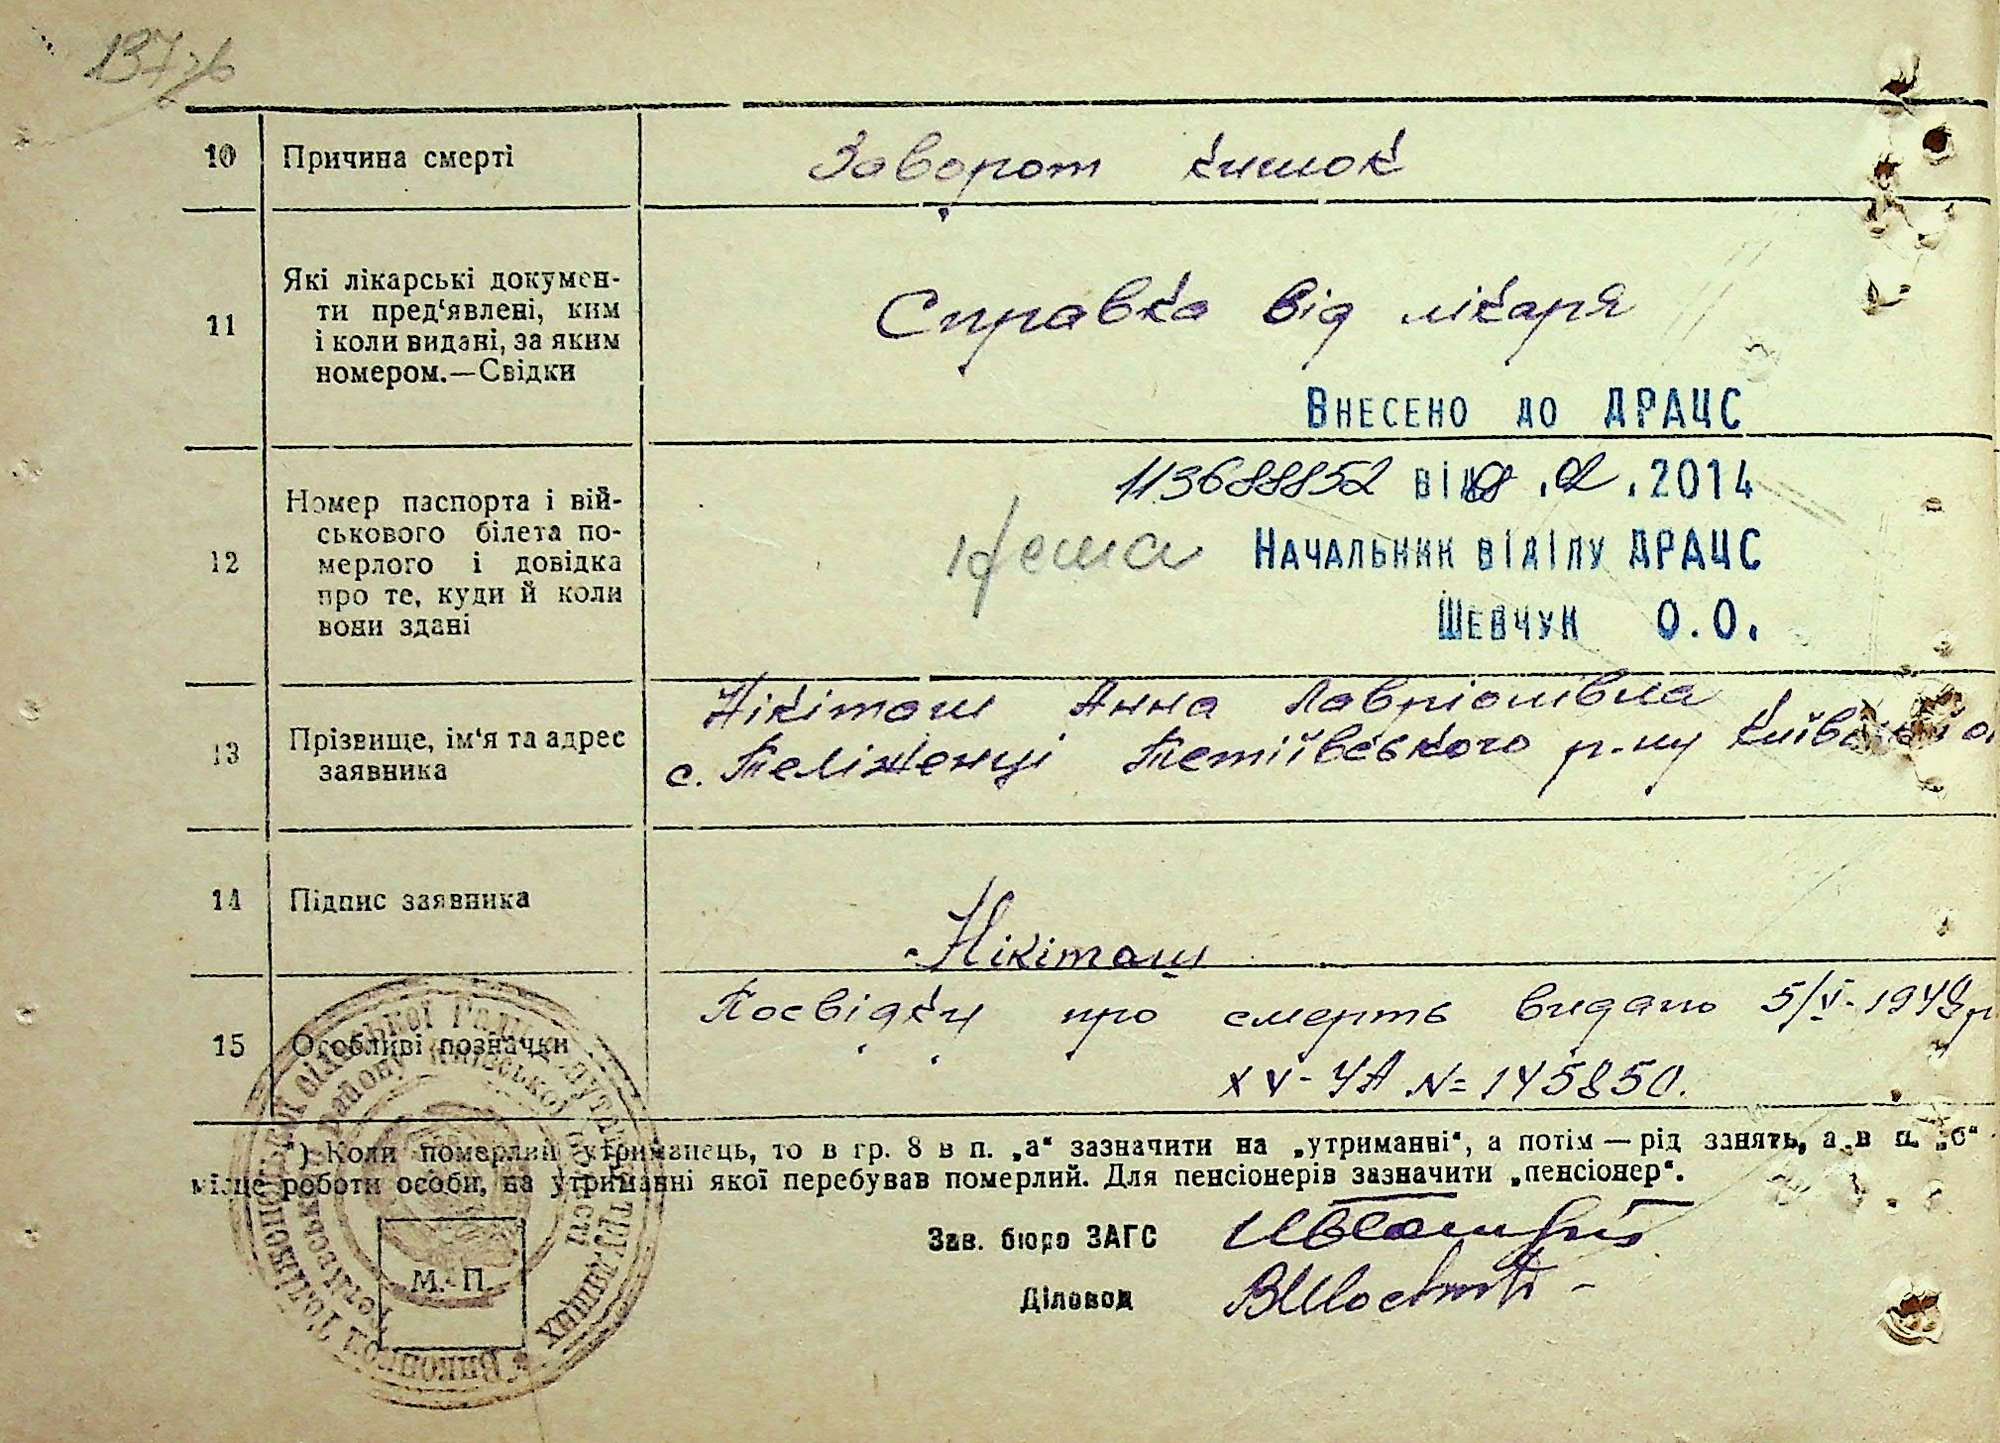 137
10 Причина смерті Заворот кишок
11 Які лікарські докумен-
ти пред‘явлені, ким
і коли видані, за яким
номером.—Свідки
Справка від лікаря
Внесено до ДРАЦС
12 Номер паспорта і вій-
ськового білета по-
мерлого і довідка
про те, куди й коли
вони здані
113688852 від .02.2014
Начальник відділу ДРАЦС
Шевчук О.О.
13 Прізвище, ім‘я та адрес
заявника
Нікіташ Анна
с. Теліженці Тетіївського р-ну Київської
14 Підпис заявника
Нікіташ
15 Особливі позначки
Посвідку про смерть видано 5/V-1948 р
XV-УА №=145850.
*) Коли померлий утриманець, то в гр. 8 в п. „а“ зазначити на „утриманні“, а потім — рід занять, а в п. „б“
місце роботи особи, на утриманні якої перебував померлий. Для пенсіонерів зазначити „пенсіонер“.
Зав. бюро ЗАГС
Діловод
М. П.